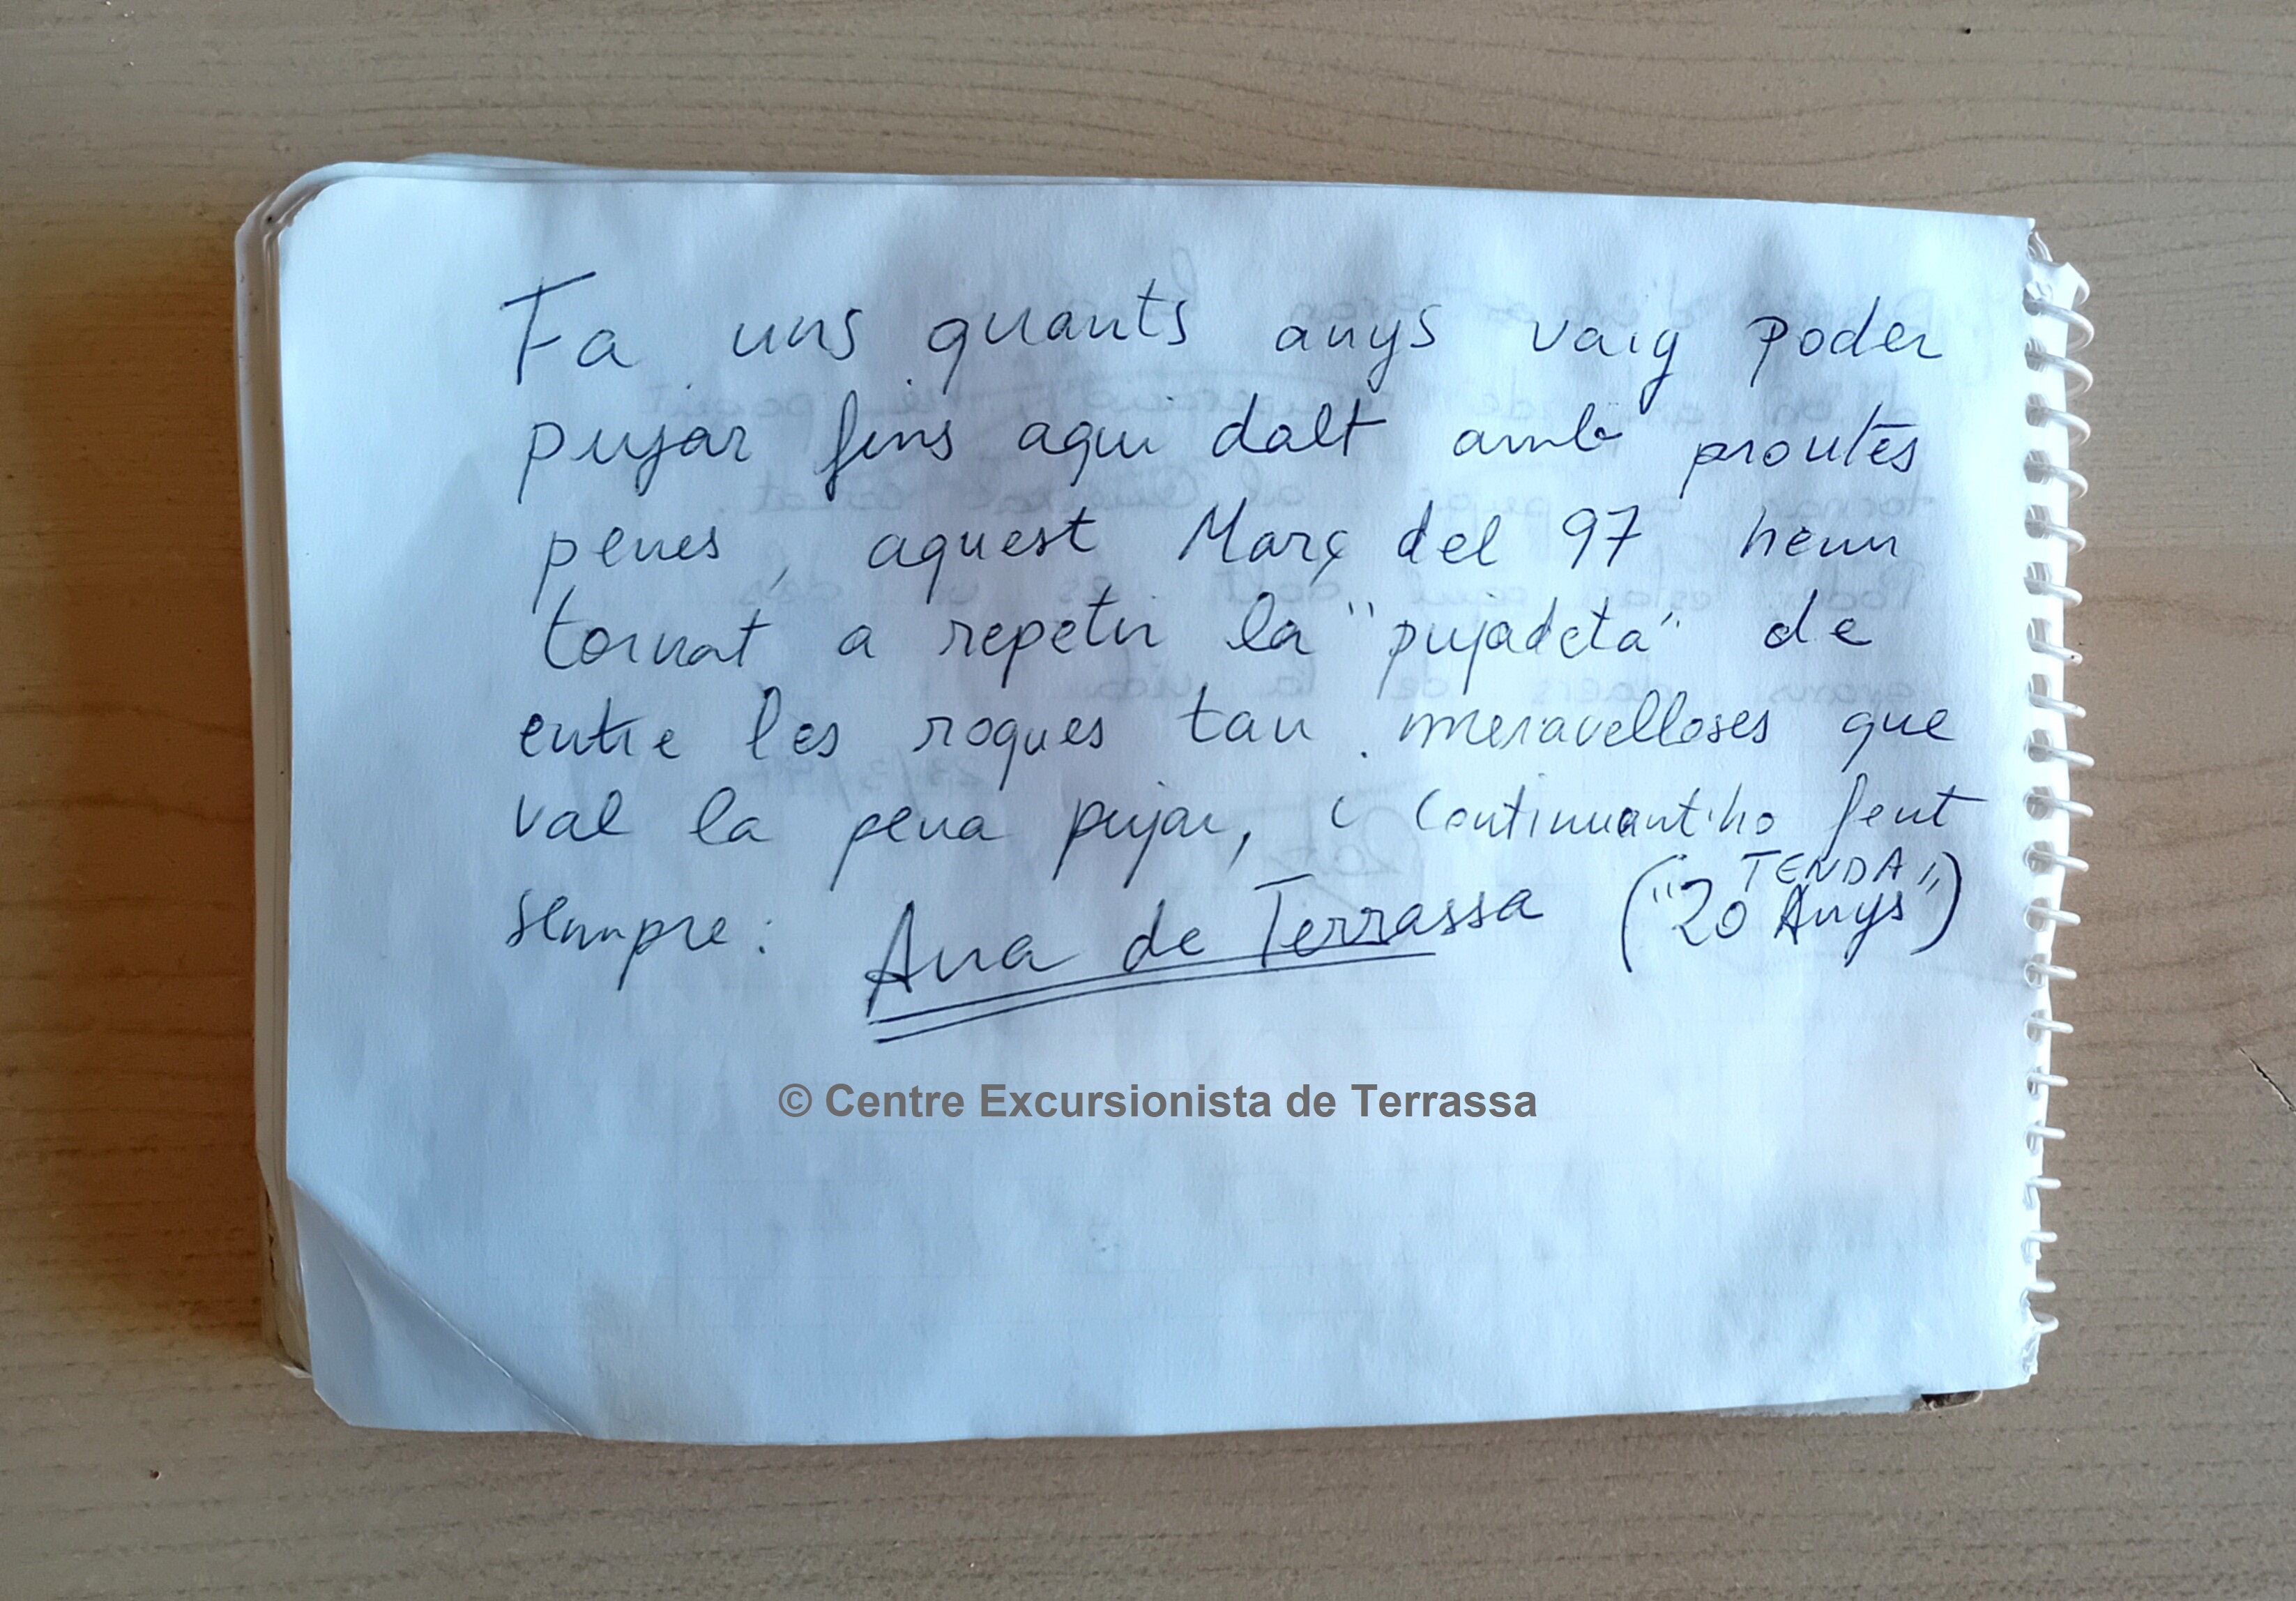 Fa uns quants anys vaig poder
pujar fins aqui dalt amb proutes
penes, aquest Març del 97 hem
tornat a repetir la "pujadeta" de
entre les roques tan meravelloses que
val la pena pujar, i continuant-ho fent
sempre: Ana de Terrassa ("TENDA
20 Anys")
© Centre Excursionista de Terrassa